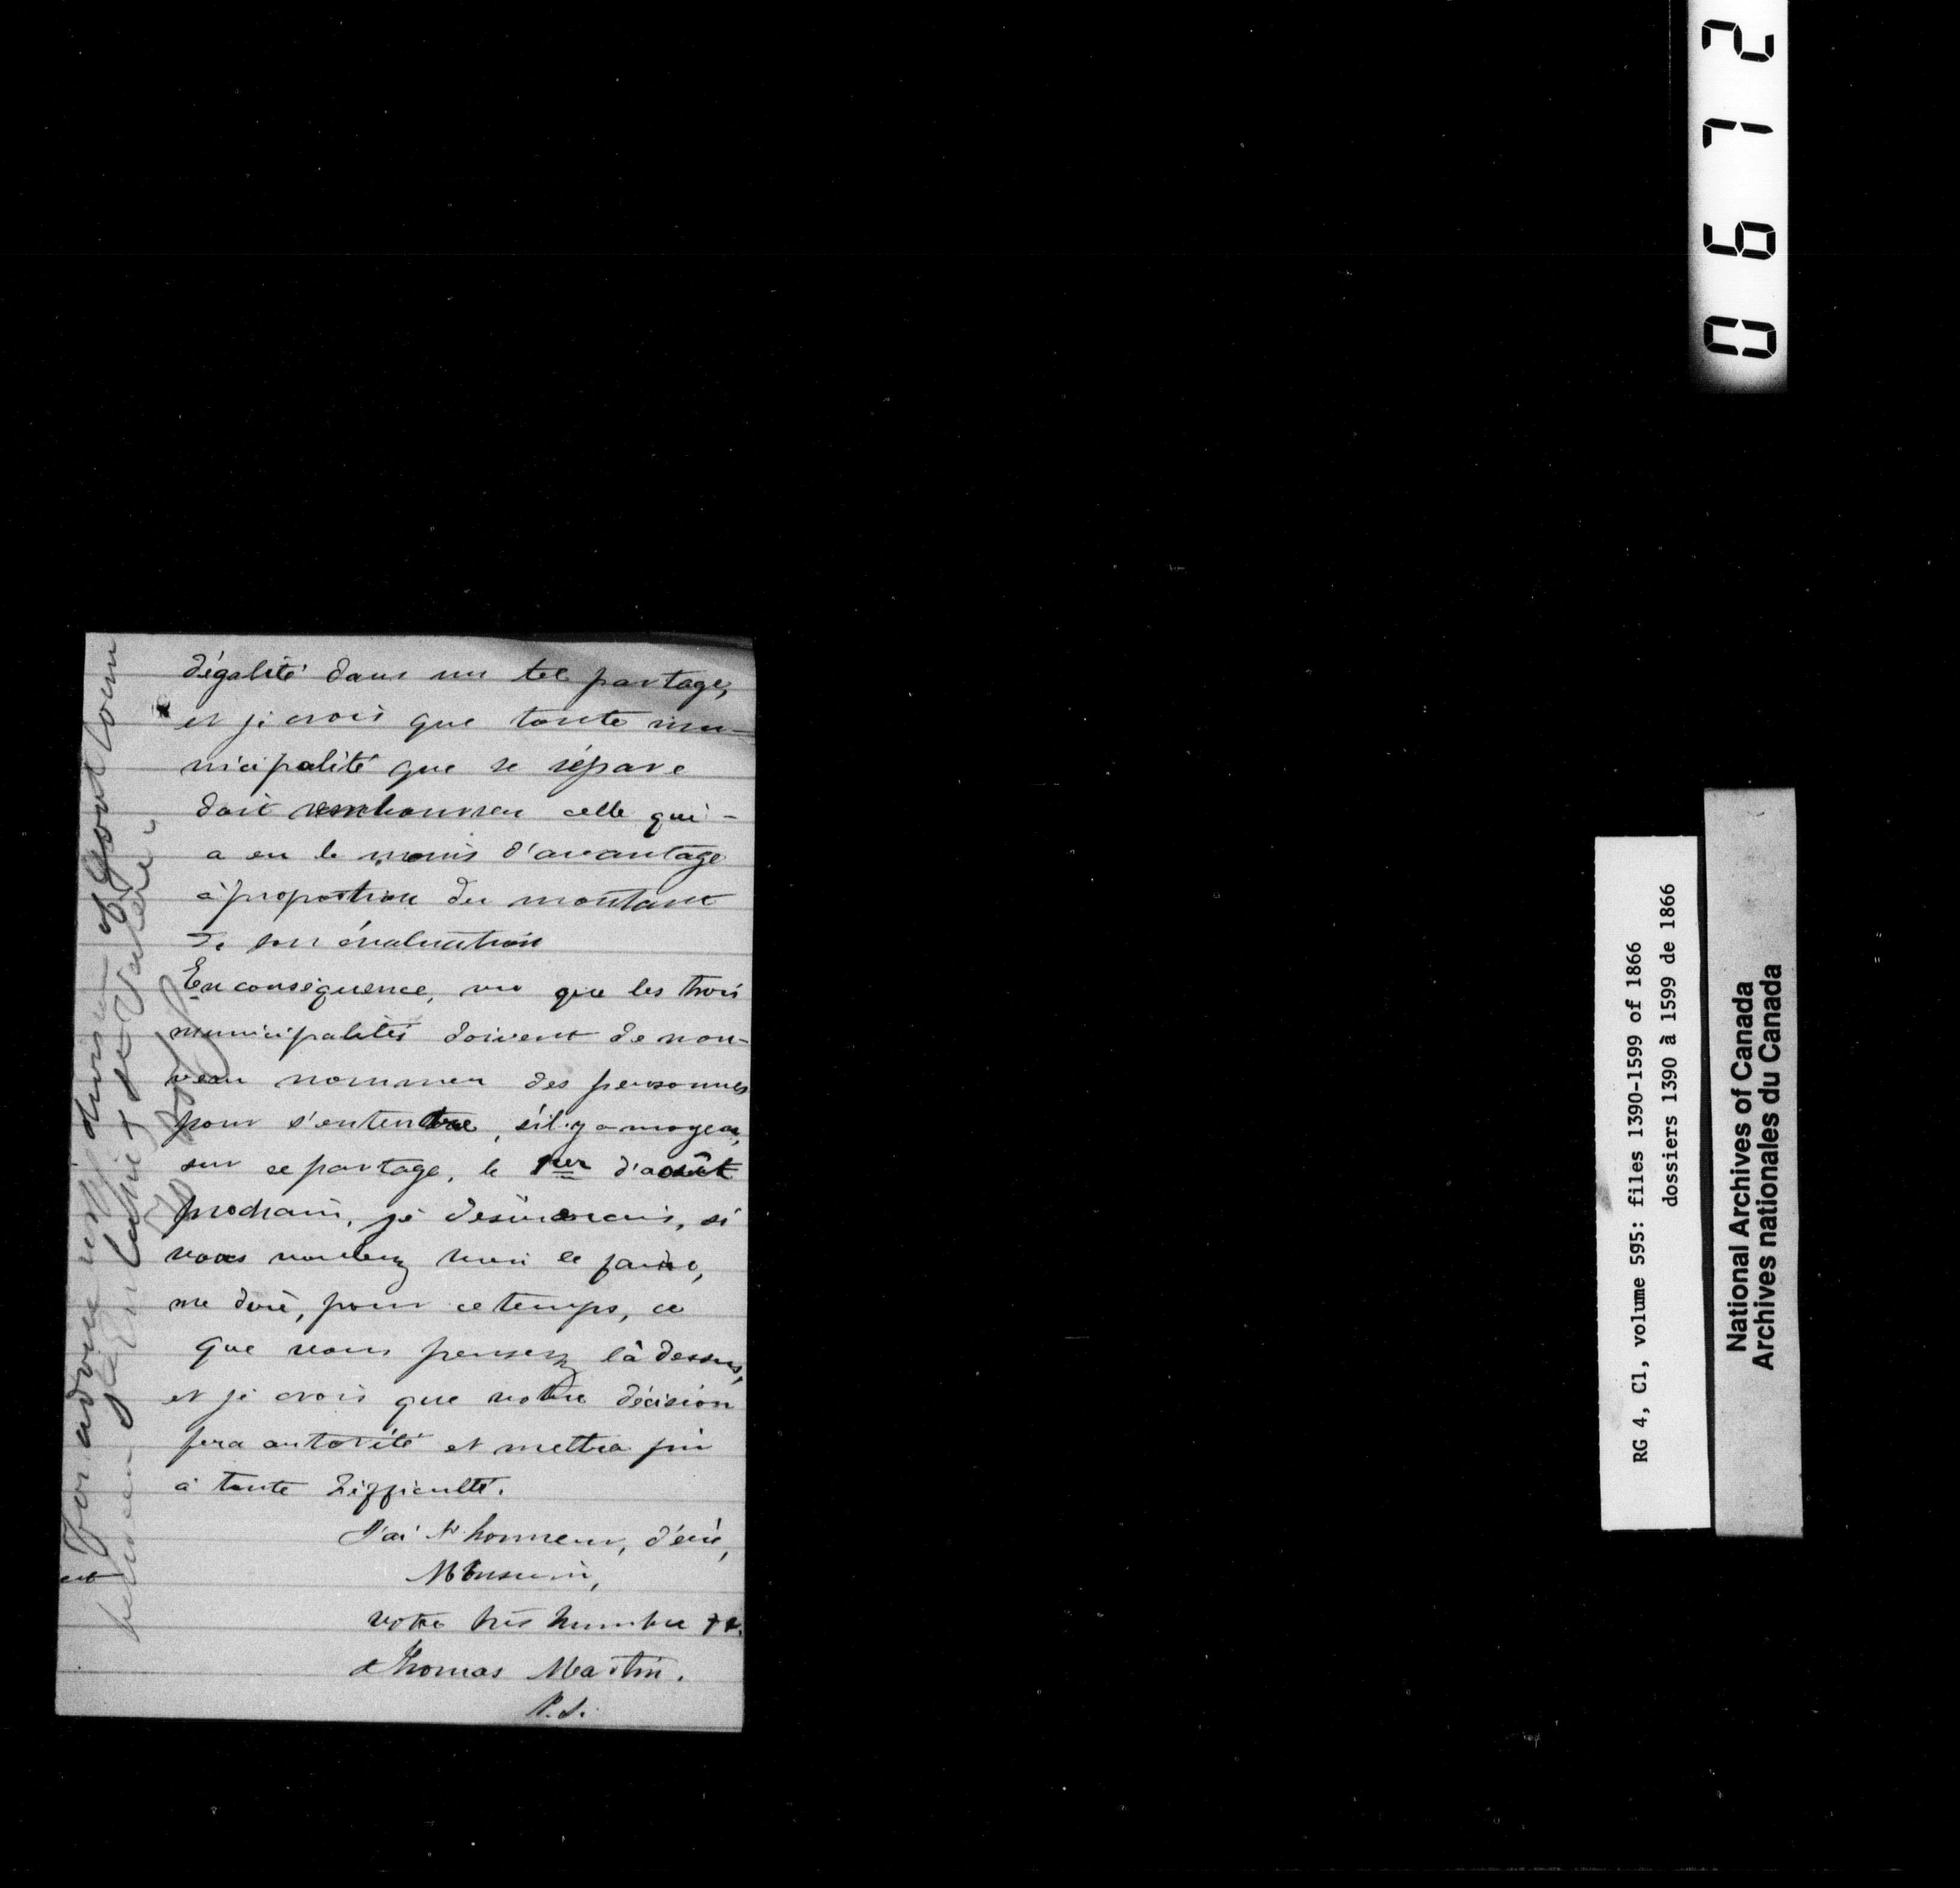 d'égalité dans un tel partage,
et je crois que toute mu-
nicipalité que se sépare
doit rembourser celle qui -
a eu le moins d'avantage
à proportion du montant
de son évaluation
En conséquence, vu que les trois
municipalités doivent de nou-
veau nommer des personnes
pour s'entendre, s'il y a moyen,
sur ce partage, le 1er d'août
prochain, je désirerais, si
vous voulez bien le faire,
me dire, pour ce temps, ce
que vous pensez là dessus,
et je crois que votre décision
fera autorité et mettra fin
à toute difficulté.
J'ai l'honneur, d'être,
Monsieur,
votre très humble &c.
Thomas Martin.
P.S.
For advice division of
between & St Valère
0672
RG 4, C1, volume 595: files 1390-1599 of 1866
dossiers 1390 à 1599 de 1866
National Archives of Canada
Archives nationales du Canada